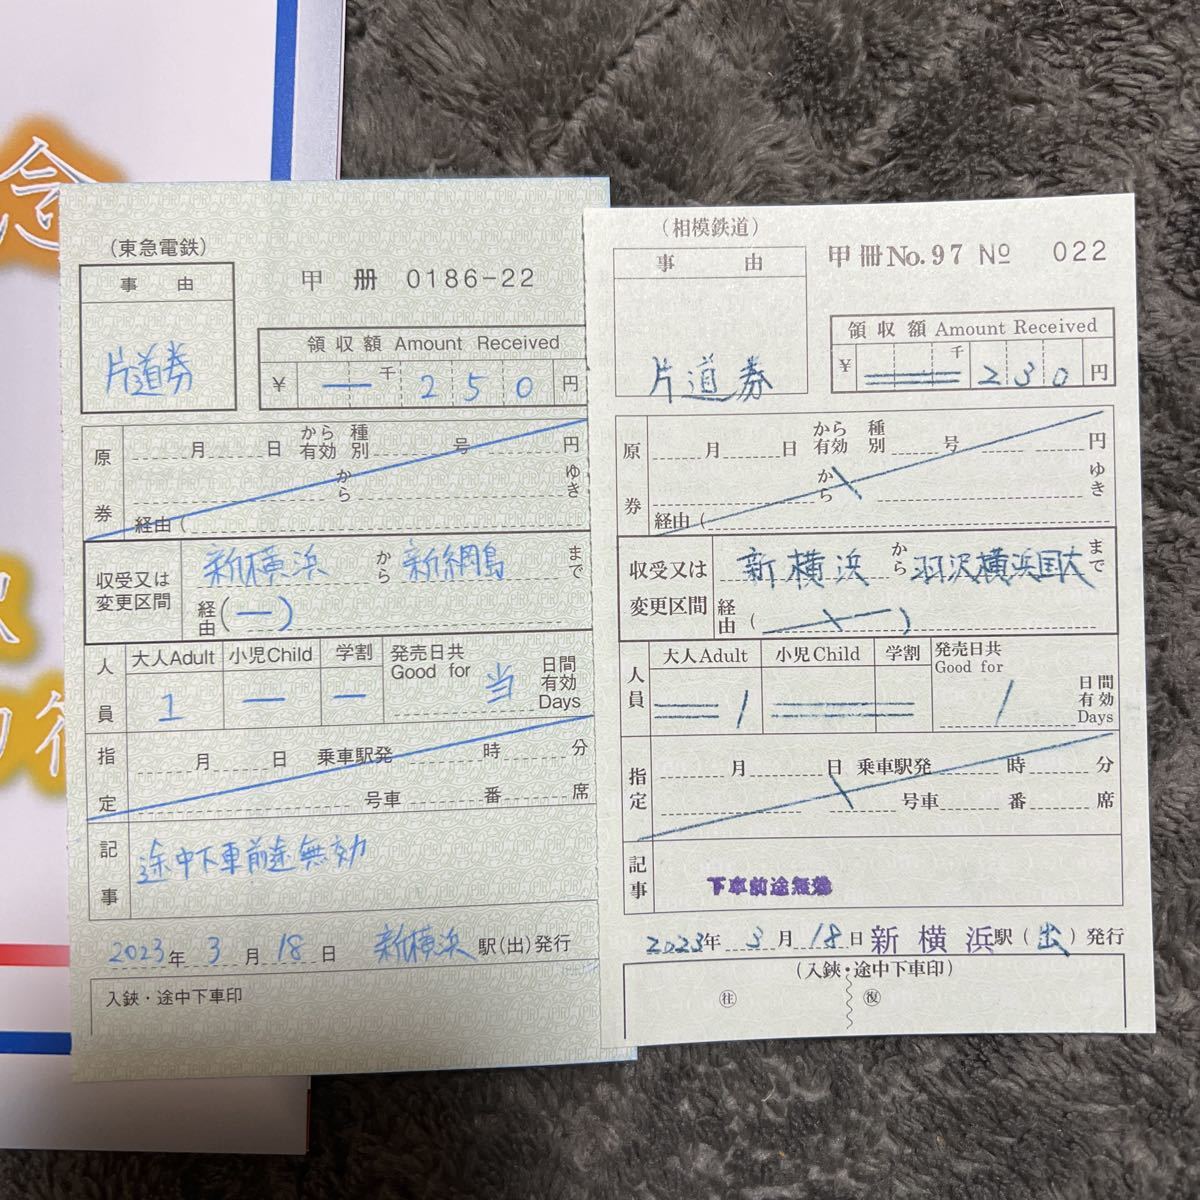 念
(東急電鉄)
事 由
甲 冊 0186-22
片道券
領収額 Amount Received
¥ 千 250 円
原券
月 日 から有効 種別 号 円
から ゆき
経由 (
収受又は変更区間
新横浜 から 新綱島 まで
経由 (ー)
人員
大人Adult 小児Child 学割 発売日共 Good for 日間有効 Days
1 ー ー 当
指定
月 日 乗車駅発 時 分
号車 番 席
記事
途中下車前途無効
2023年 3月 18日 新横浜 駅(出)発行
入鋏・途中下車印
(相模鉄道)
事 由
甲冊No.97 № 022
片道券
領収額 Amount Received
¥ 千 230 円
原券
月 日 から有効 種別 号 円
から ゆき
経由 (
収受又は変更区間
新横浜 から 羽沢横浜国大 まで
経由 ( )
人員
大人Adult 小児Child 学割 発売日共 Good for 日間有効 Days
1 1
指定
月 日 乗車駅発 時 分
号車 番 席
記事
下車前途無効
2023年 3月 18日 新横浜駅(出)発行
(入鋏・途中下車印)
往 復